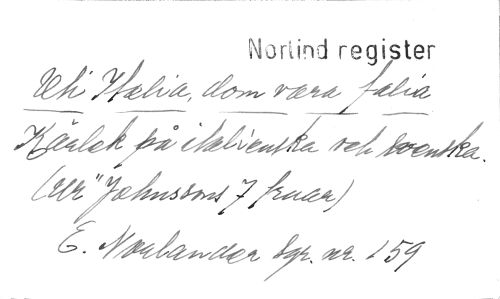 Norlind register
Uti Italia, dom vara falia
Kärlek på italienska och svenska.
(Ur "Johnssons 7 fruar)
E. Norlander Sgr. nr. 159